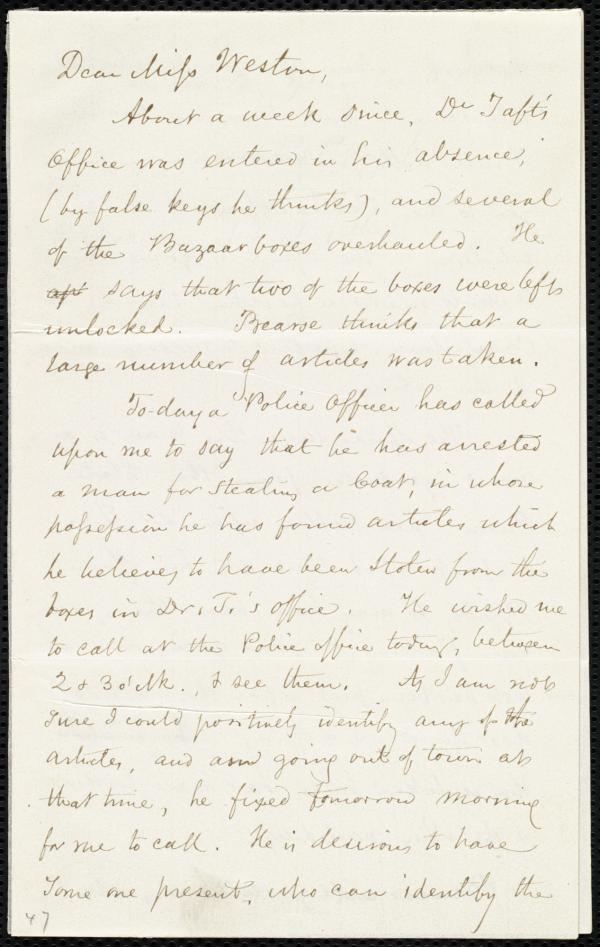 Dear Miss Weston,
About a week since, Dr Taft's
Office was entered in his absence,
(by false keys he thinks), and several
of the Bazaar boxes overhauled. He
says that two of the boxes were left
unlocked. Bearse thinks that a
large number of articles was taken.
To-day a Police Officer has called
upon me to say that he has arrested
a man for stealing a Coat, in whose
possession he has found articles which
he believes to have been stolen from the
boxes in Dr. T.'s office. He wished me
to call at the Police office today, between
2 & 3 o'clk., & see them. As I am not
sure I could positively identify any of the
articles, and am going out of town at
that time, he fixed tomorrow morning
for me to call. He is desirous to have
some one present, who can identify the
47